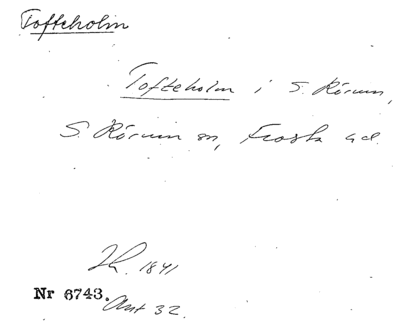 Tofteholm
Tofteholm i S. Rörum,
S. Rörum sn, Frosta hd.
Jh. 1841
Nr 6743.
Akt 32.